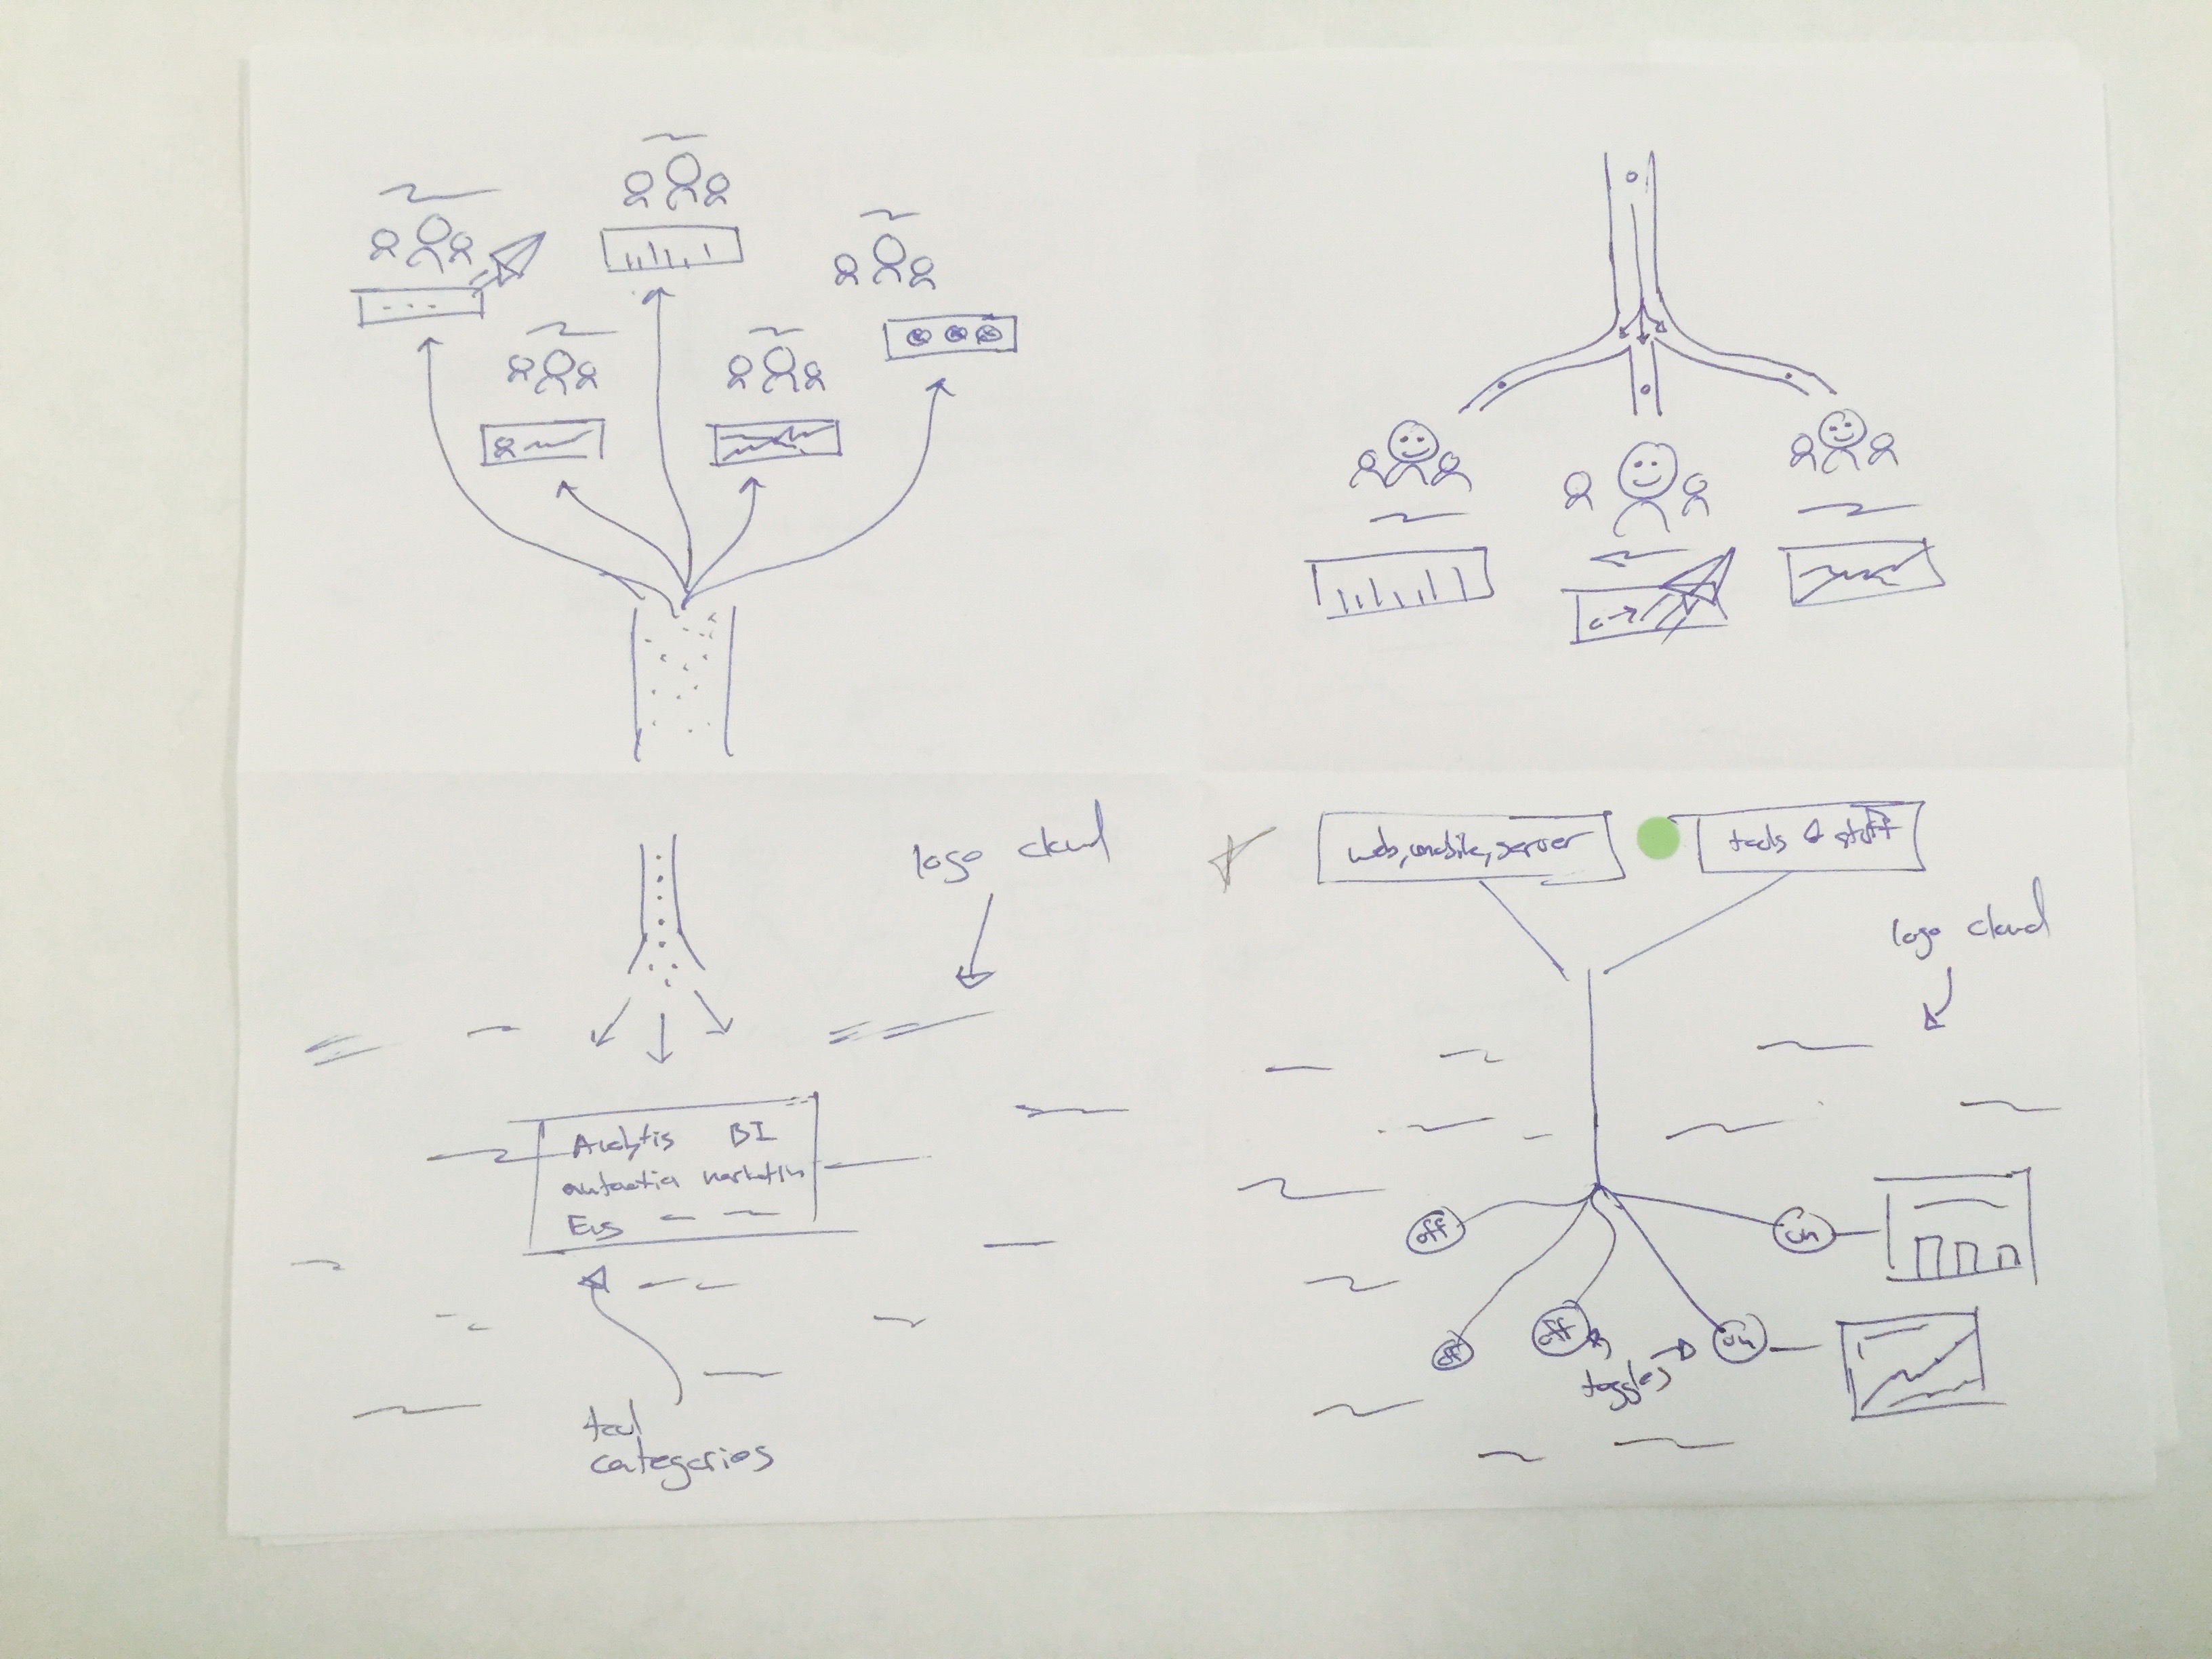 logo cloud
Analytis BI
automatio marketin
Eus
tool
categories
web, mobile, server
tools & stuff
logo cloud
off
on
off
off
on
toggles